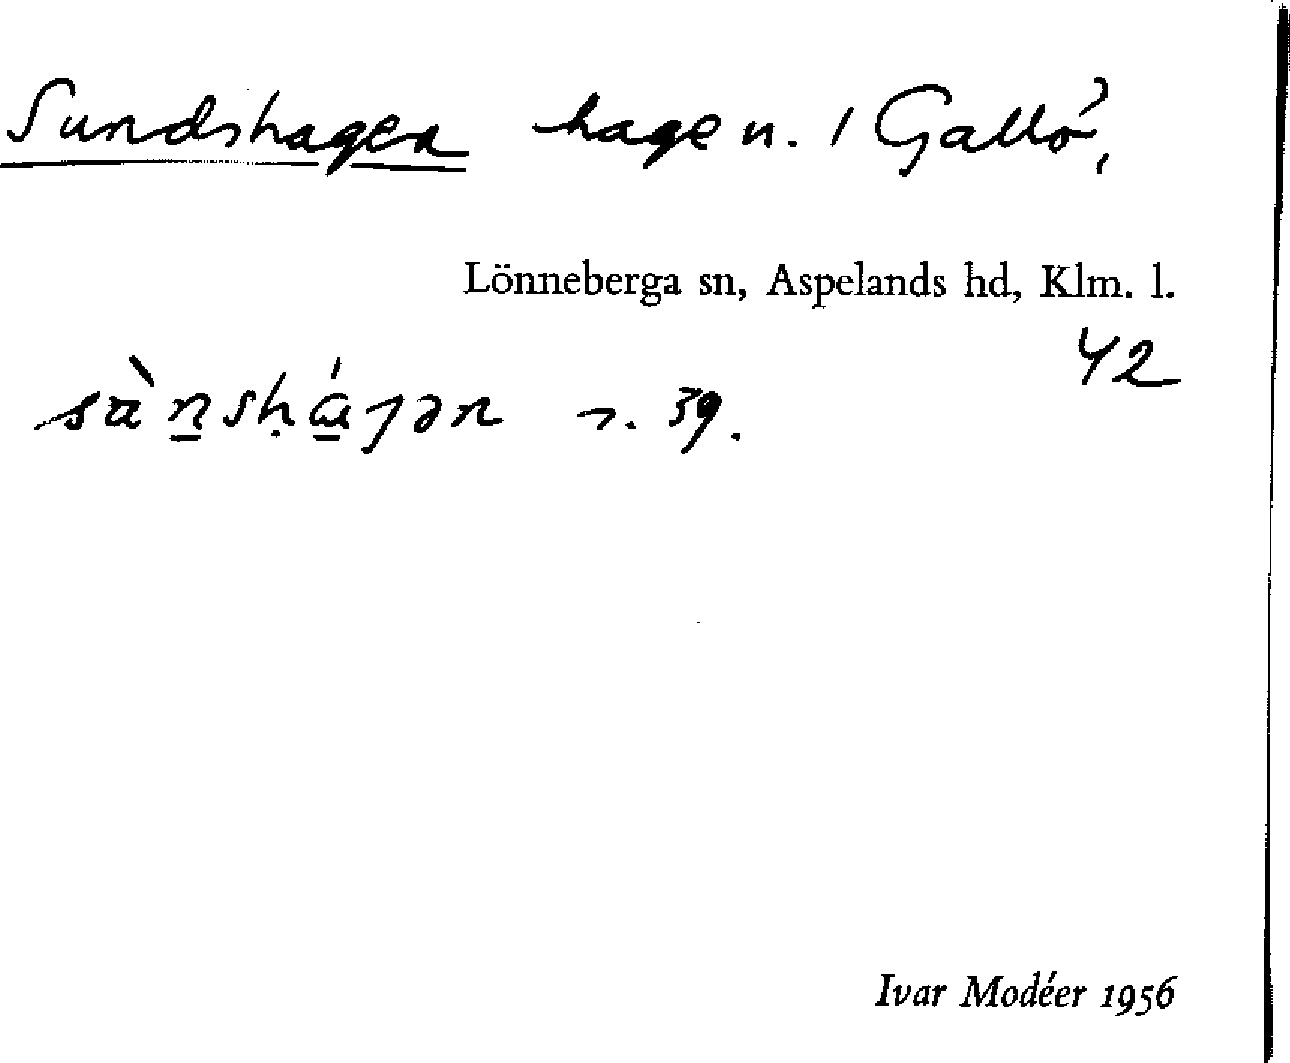 Sundshagen hage n. 1 Gallö,
Lönneberga sn, Aspelands hd, Klm. l.
42
39.
Ivar Modéer 1956